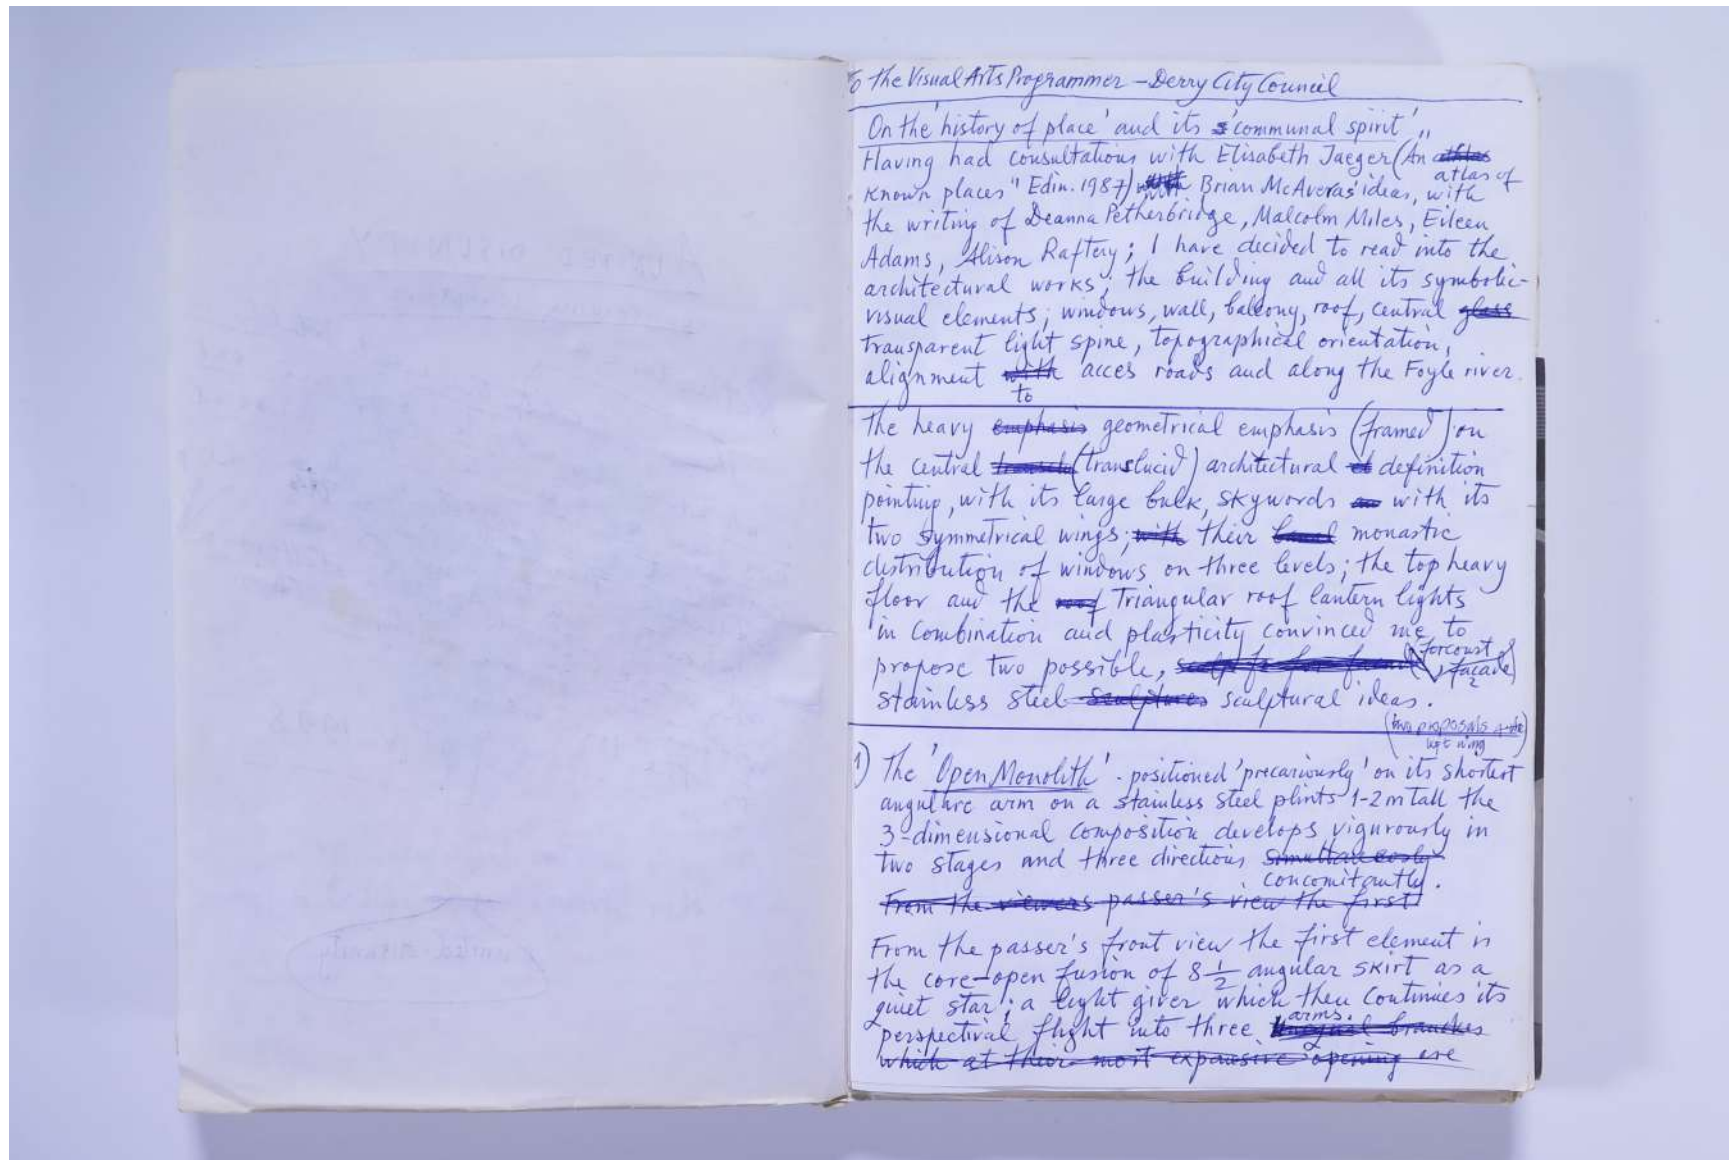 To the Visual Arts Programmer – Derry City Council
On the 'history of place' and its 'communal spirit',,
Having had consultations with Elisabeth Jaeger (An atlas
atlas of
known places" Edin. 1987) with Brian McAveras' ideas, with
the writing of Deanna Petherbridge, Malcolm Miles, Eileen
Adams, Alison Raftery; I have decided to read into the
architectural works; the building and all its symbolic-
visual elements; windows, wall, balcony, roof, central glass
transparent light spine, topographical orientation,
alignment with acces roads and along the Foyle river.
to
The heavy emphasis geometrical emphasis (framed) on
the central (translucid) architectural definition
pointing, with its large bulk, skywords with its
two symmetrical wings; with their monastic
distribution of windows on three levels; the top heavy
floor and the roof Triangular roof lantern lights
in combination and plasticity convinced me to
propose two possible, (forcourt &
façade)
stainless steel sculptures sculptural ideas.
(two proposals
left wing)
1) The 'Open Monolith' - positioned 'precariously' on its shortest
angularc arm on a stainless steel plints 1-2 m tall the
3-dimensional composition develops vigurously in
two stages and three directions simultaneously
concomitantly.
From the viewers passer's view the first
From the passer's front view the first element is
the core-open fusion of 8 1/2 angular skirt as a
quiet star; a light giver which then continues its
arms.
perspectival flight into three unequal branches
which at their most expansive opening are